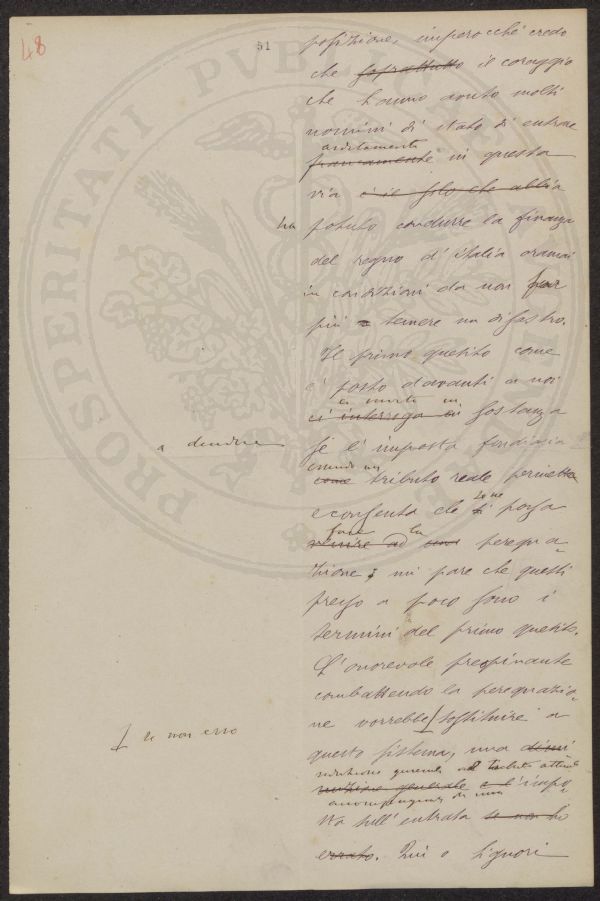 48
51
PROSPERITATI PVBLIC
posizione, imperocchè credo
che soprattutto il coraggio
che hanno avuto molti
uomini di stato di entrare
arditamente
francamente in questa
via è il solo che abbia
ha potuto condurre la finanza
del regno d'italia oramai
in condizioni da non far
più a temere un disastro.
Il primo quesito come
è posto davanti a noi
ci invita in
ci interroga in sostanza
a decidere
se l'imposta fondiaria
essendo un
come tributo reale permetta
e consenta che si possa
fare la
venire ad una perequa
zione; mi pare che questi
presso a poco sono i
termini del primo quesito.
L'onorevole preopinante
combattendo la perequazio
ne vorrebbe sostituire a
se non erro
questo sistema, una dimi
riduzione generale del tributo attuale
nuzione generale e l'impo
accompagnata da una
sta sull'entrata se non ho
errato. Qui o Signori